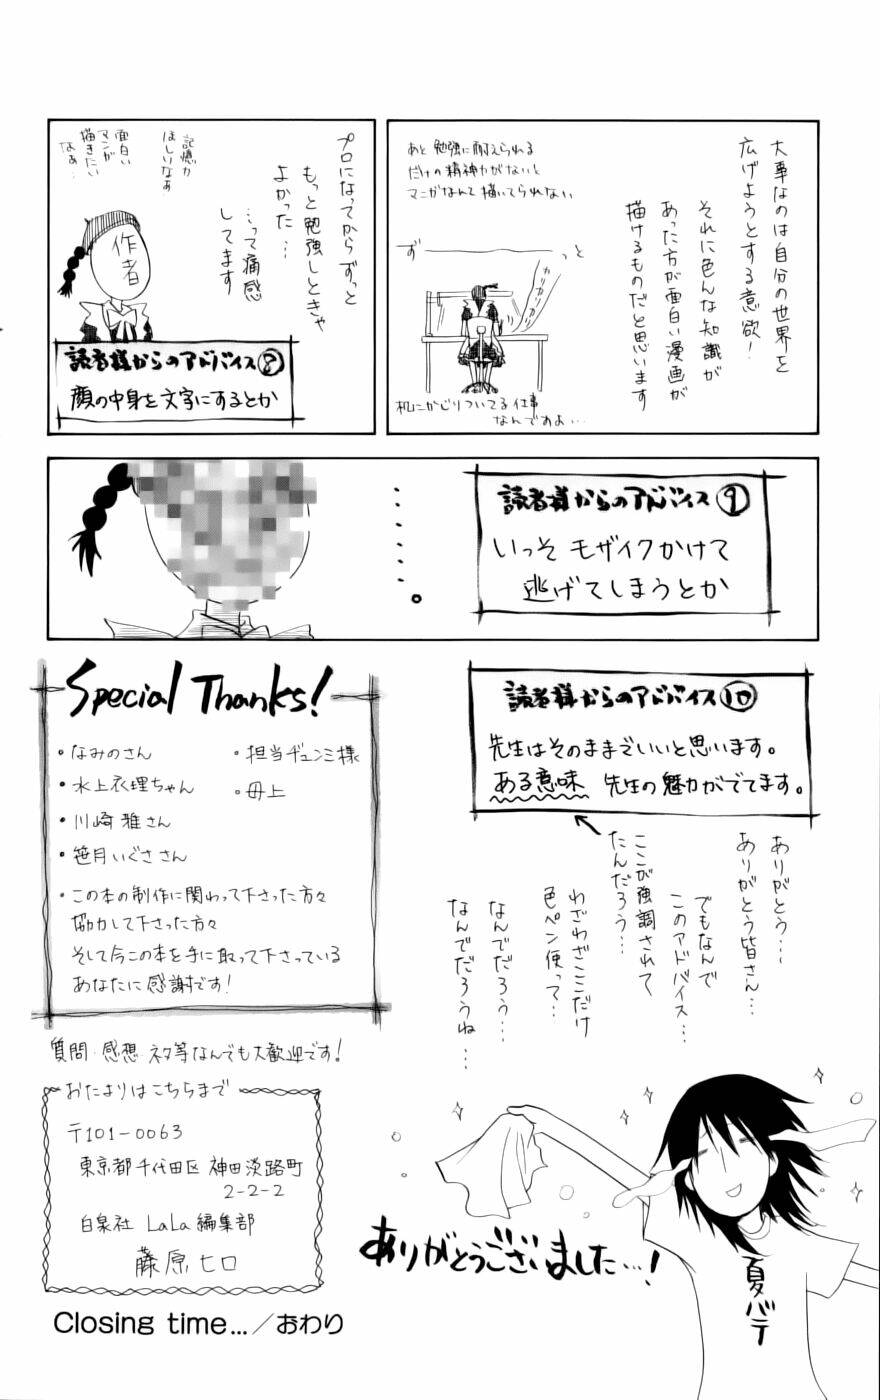 大事なのは自分の世界を
広げようとする意欲！
それに色んな知識が
あった方が面白い漫画が
描けるものだと思います
あと 勉強に耐えられる
だけの精神力がないと
マンガなんて描いてられない
ず
っと
カリカリカリカリ
机にかじりついてる仕事
なんですよ…
プロになってからずっと
もっと勉強しときゃ
よかった…
…って痛感
してます
記憶力
ほしいなぁ
面白い
マンガ
描きたい
なぁ…
作者
読者様からのアドバイス⑧
顔の中身を文字にするとか
読者様からのアドバイス⑨
いっそ モザイクかけて
逃げてしまうとか
……。
読者様からのアドバイス⑩
先生はそのままでいいと思います。
ある意味 先生の魅力がでてます。
ありがとう…
ありがとう皆さん…
でもなんで
このアドバイス…
ここが強調されて
たんだろう…
わざわざここだけ
色ペン使って…
なんでだろう…
なんでだろうね…
Special Thanks!
・なみのさん
・水上衣理ちゃん
・川崎雅さん
・笹月いぐささん
・担当ヂュンミ様
・母上
・この本の制作に関わって下さった方々
協力して下さった方々
そして今この本を手に取って下さっている
あなたに感謝です!
質問・感想・ネタ等なんでも大歓迎です!
おたよりはこちらまで
〒101-0063
東京都千代田区神田淡路町
2-2-2
白泉社 LaLa編集部
藤原ヒロ
ありがとうございました…!
夏バテ
Closing time…／おわり